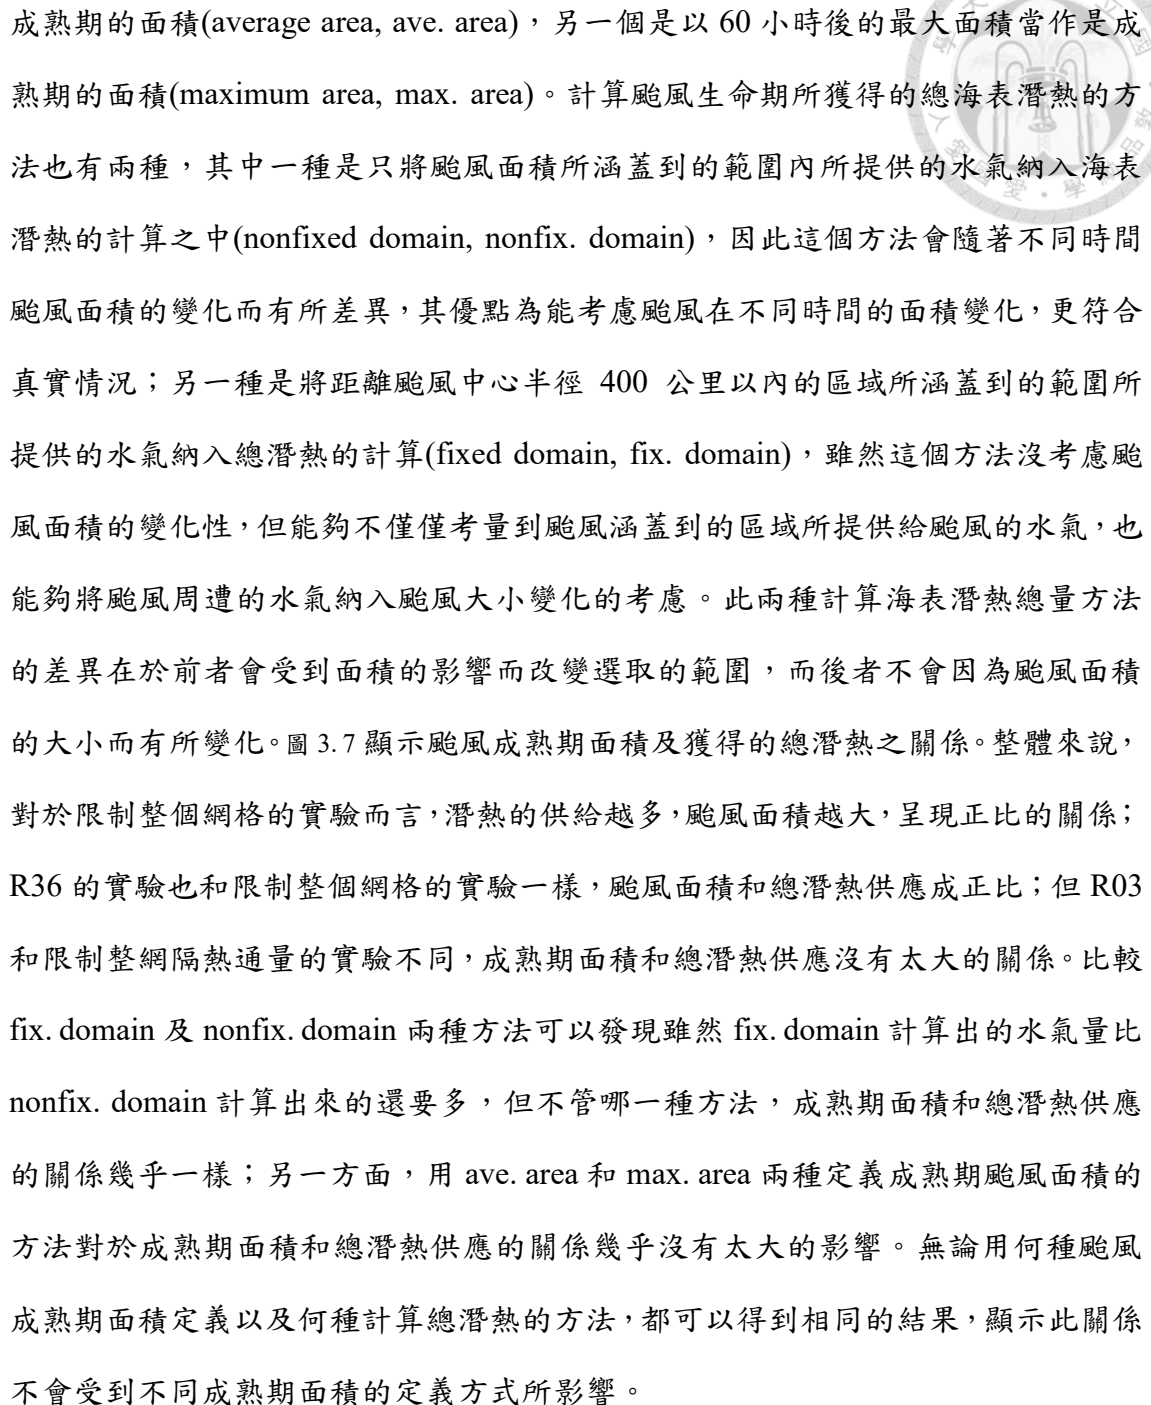 成熟期的面積(average area, ave. area)，另一個是以 60 小時後的最大面積當作是成
熟期的面積(maximum area, max. area)。計算颱風生命期所獲得的總海表潛熱的方
法也有兩種，其中一種是只將颱風面積所涵蓋到的範圍內所提供的水氣納入海表
潛熱的計算之中(nonfixed domain, nonfix. domain)，因此這個方法會隨著不同時間
颱風面積的變化而有所差異，其優點為能考慮颱風在不同時間的面積變化，更符合
真實情況；另一種是將距離颱風中心半徑 400 公里以內的區域所涵蓋到的範圍所
提供的水氣納入總潛熱的計算(fixed domain, fix. domain)，雖然這個方法沒考慮颱
風面積的變化性，但能夠不僅僅考量到颱風涵蓋到的區域所提供給颱風的水氣，也
能夠將颱風周遭的水氣納入颱風大小變化的考慮。此兩種計算海表潛熱總量方法
的差異在於前者會受到面積的影響而改變選取的範圍，而後者不會因為颱風面積
的大小而有所變化。圖 3.7 顯示颱風成熟期面積及獲得的總潛熱之關係。整體來說，
對於限制整個網格的實驗而言，潛熱的供給越多，颱風面積越大，呈現正比的關係；
R36 的實驗也和限制整個網格的實驗一樣，颱風面積和總潛熱供應成正比；但 R03
和限制整網隔熱通量的實驗不同，成熟期面積和總潛熱供應沒有太大的關係。比較
fix. domain 及 nonfix. domain 兩種方法可以發現雖然 fix. domain 計算出的水氣量比
nonfix. domain 計算出來的還要多，但不管哪一種方法，成熟期面積和總潛熱供應
的關係幾乎一樣；另一方面，用 ave. area 和 max. area 兩種定義成熟期颱風面積的
方法對於成熟期面積和總潛熱供應的關係幾乎沒有太大的影響。無論用何種颱風
成熟期面積定義以及何種計算總潛熱的方法，都可以得到相同的結果，顯示此關係
不會受到不同成熟期面積的定義方式所影響。